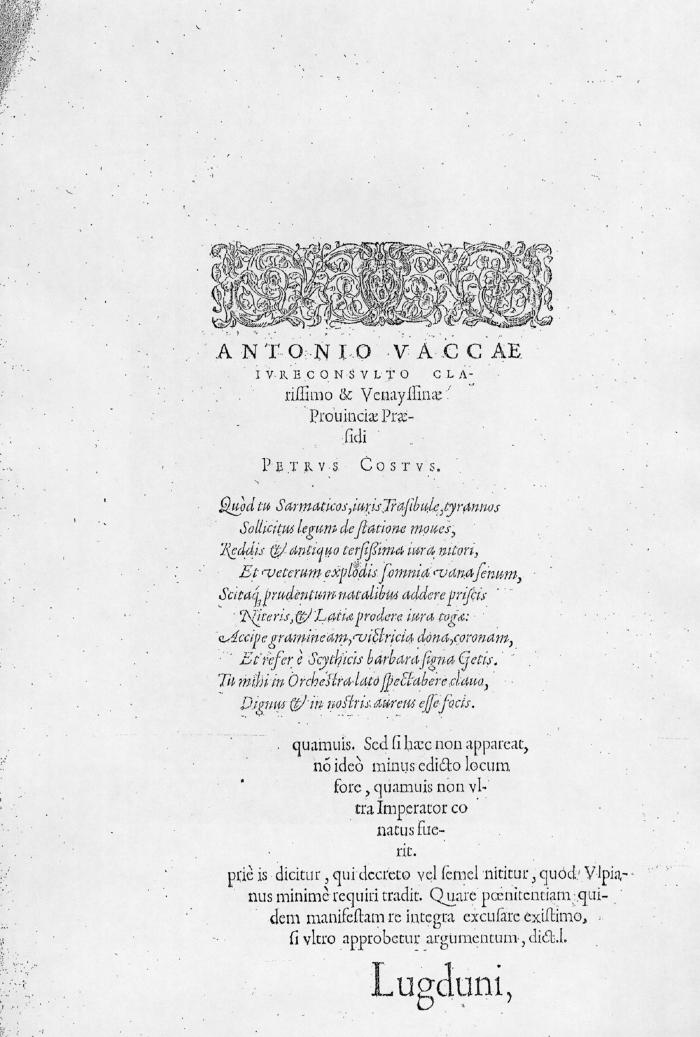 ANTONIO VACCAE
IVRECONSVLTO CLA-
rißimo & Venayßinæ
Prouinciæ Præ-
sidi
PETRVS COSTVS.
Quòd tu Sarmaticos, iuris Trasibule, tyrannos
Sollicitus legum de statione moues,
Reddis & antiquo tersißima iura nitori,
Et veterum explodis somnia vana senum,
Scitaq́; prudentum natalibus addere priscis
Niteris, & Latiæ prodere iura togæ:
Accipe gramineam, victricia dona, coronam,
Et refer è Scythicis barbara signa Getis.
Tu mihi in Orchestra lato spectabere clauo,
Dignus & in nostris aureus esse focis.
quamuis. Sed si hæc non appareat,
nō ideò minus edicto locum
fore, quamuis non vl-
tra Imperator co
natus fue-
rit.
priè is dicitur, qui decreto vel semel nititur, quod Vlpia-
nus minimè requiri tradit. Quare pœnitentiam qui-
dem manifestam re integra excusare existimo,
si vltro approbetur argumentum, dict.l.
Lugduni,